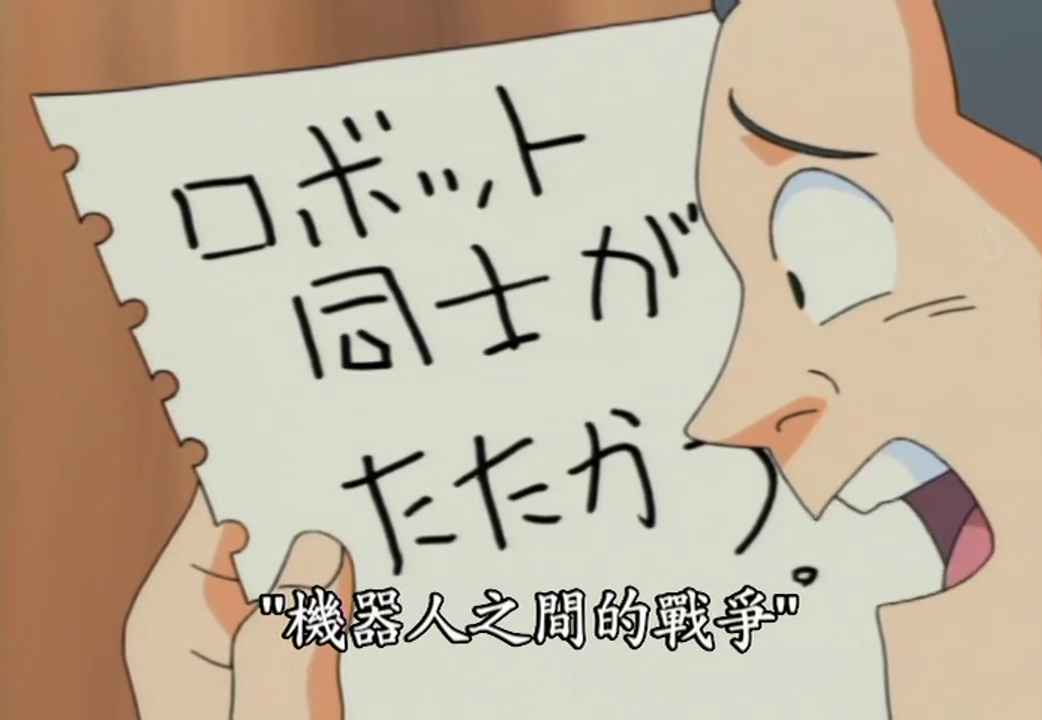 ロボット
同士が
たたかう。
"機器人之間的戰爭"